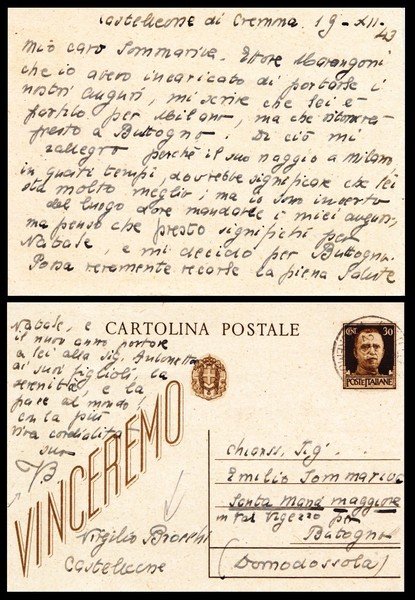 Castelleone di Cremona 19-XII-43
Mio caro Sommariva, Ettore Marangoni
che io avevo incaricato di portarle i
nostri auguri, mi scrive che lei è
partito per Milano, ma che ritornerà
presto a Buttogno: Di ciò mi
rallegro perché il suo viaggio a Milano
in questi tempi, dovrebbe significare che lei
sta molto meglio; ma io sono incerto
del luogo dove mandarle i miei auguri,
ma penso che presto significhi per
Natale, e mi decido per Buttogno.
Possa veramente recarle la piena salute
Natale, e
il nuovo anno portare
a lei alla sig. Antonietta
ai suoi figlioli, la
serenità e la
pace al mondo!
con la più
viva cordialità
suo
VB
CARTOLINA POSTALE
CENT. 30
POSTE ITALIANE
VINCEREMO
Chiariss. Sig.
Emilio Sommariva
Santa Maria Maggiore
in Val Vigezzo per
Butogno
(Domodossola)
Virgilio Brocchi
Castelleone